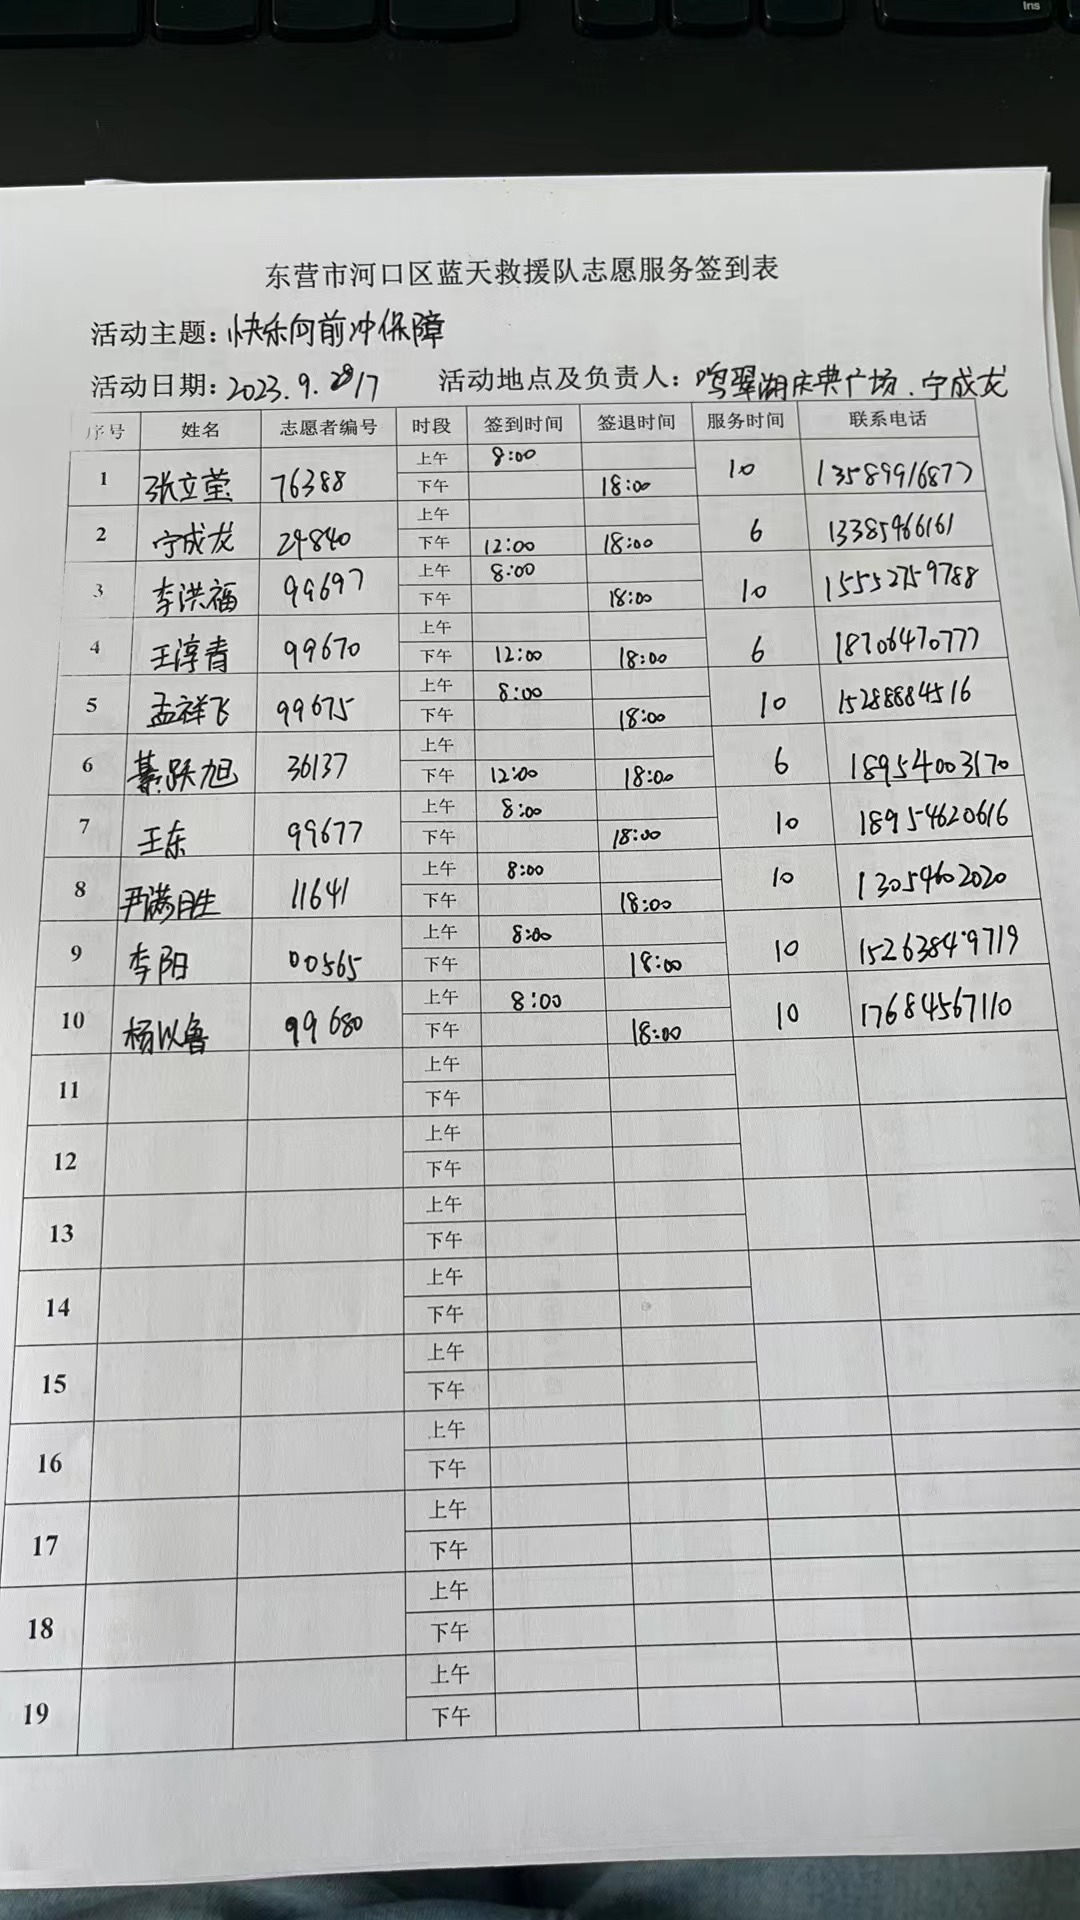 Ins
东营市河口区蓝天救援队志愿服务签到表
活动主题：快乐向前冲保障
活动日期：2023.9. 活动地点及负责人：鸣翠湖庆典广场.宁成龙
序号 姓名 志愿者编号 时段 签到时间 签退时间 服务时间 联系电话
1 张立莹 76388 上午 8:00 10 13589916877
下午 18:00
2 宁成龙 29840 上午 6 13385966161
下午 12:00 18:00
3 李洪福 99697 上午 8:00 10 15552759788
下午 18:00
4 王淳青 99670 上午 6 18706470777
下午 12:00 18:00
5 孟祥飞 99675 上午 8:00 10 15288884516
下午 18:00
6 綦跃旭 36137 上午 6 18954003170
下午 12:00 18:00
7 王东 99677 上午 8:00 10 18954620616
下午 18:00
8 尹满胜 11641 上午 8:00 10 13054602020
下午 18:00
9 李阳 00565 上午 8:00 10 15263849719
下午 18:00
10 杨以鲁 99680 上午 8:00 10 17684567110
下午 18:00
11 上午
下午
12 上午
下午
13 上午
下午
14 上午
下午
15 上午
下午
16 上午
下午
17 上午
下午
18 上午
下午
19 上午
下午